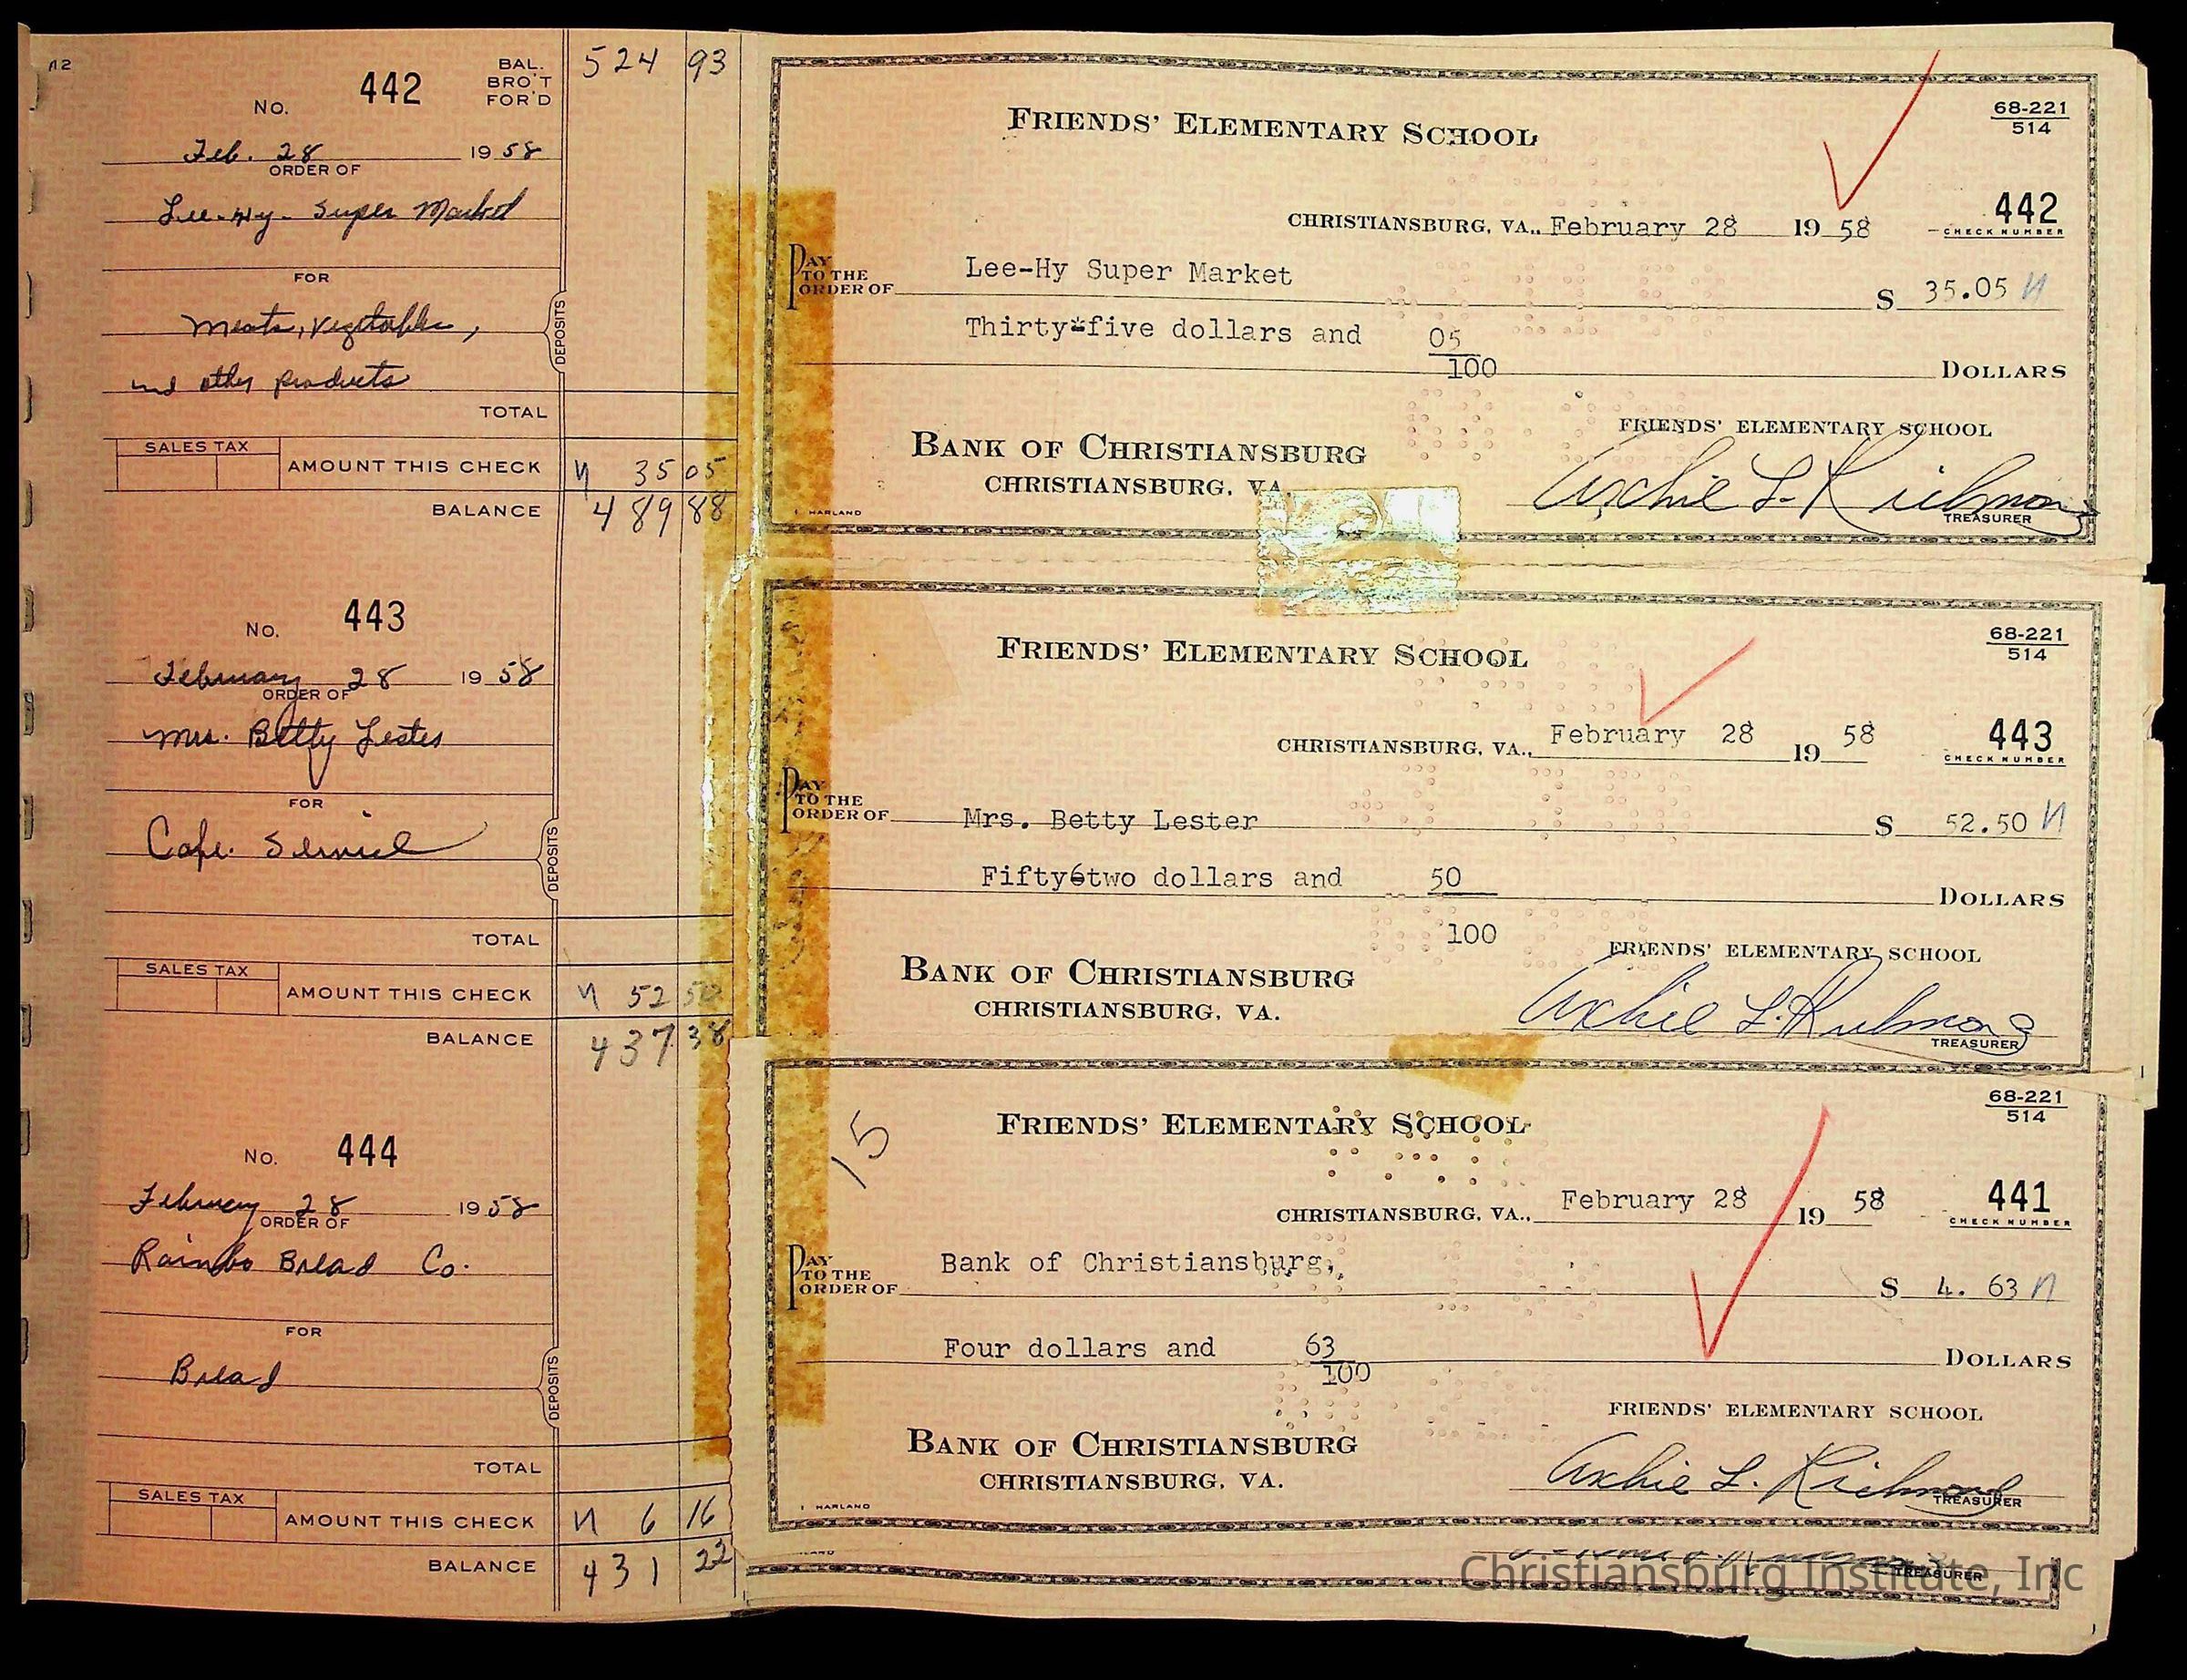 No. 442 BAL. BRO'T FOR'D 524 93
Feb. 28 1958
ORDER OF
Lee-Hy- Super Market
FOR
Meats, vegetables,
and other products
DEPOSITS
TOTAL
SALES TAX
AMOUNT THIS CHECK 35 05
BALANCE 489 88
No. 443
February 28 1958
ORDER OF
Mrs. Betty Lester
FOR
Cafe. Service
DEPOSITS
TOTAL
SALES TAX
AMOUNT THIS CHECK 52 50
BALANCE 437 38
No. 444
February 28 1958
ORDER OF
Rainbo Bread Co.
FOR
Bread
DEPOSITS
TOTAL
SALES TAX
AMOUNT THIS CHECK 6 16
BALANCE 431 22
FRIENDS' ELEMENTARY SCHOOL
68-221
514
CHRISTIANSBURG, VA., February 28 19 58
442
CHECK NUMBER
PAY TO THE ORDER OF Lee-Hy Super Market $ 35.05
Thirty-five dollars and 05
100 DOLLARS
FRIENDS' ELEMENTARY SCHOOL
BANK OF CHRISTIANSBURG
CHRISTIANSBURG, VA.
Archie L. Richmond
TREASURER
HARLAND
FRIENDS' ELEMENTARY SCHOOL
68-221
514
CHRISTIANSBURG, VA., February 28 19 58
443
CHECK NUMBER
PAY TO THE ORDER OF Mrs. Betty Lester $ 52.50
Fifty6two dollars and 50
DOLLARS
100
FRIENDS' ELEMENTARY SCHOOL
BANK OF CHRISTIANSBURG
CHRISTIANSBURG, VA.
Archie L. Richmond
TREASURER
15
FRIENDS' ELEMENTARY SCHOOL
68-221
514
CHRISTIANSBURG, VA., February 28 19 58
441
CHECK NUMBER
PAY TO THE ORDER OF Bank of Christiansburg, $ 4. 63
Four dollars and 63
100 DOLLARS
FRIENDS' ELEMENTARY SCHOOL
BANK OF CHRISTIANSBURG
CHRISTIANSBURG, VA.
Archie L. Richmond
TREASURER
HARLAND
TREASURER
Christiansburg Institute, Inc